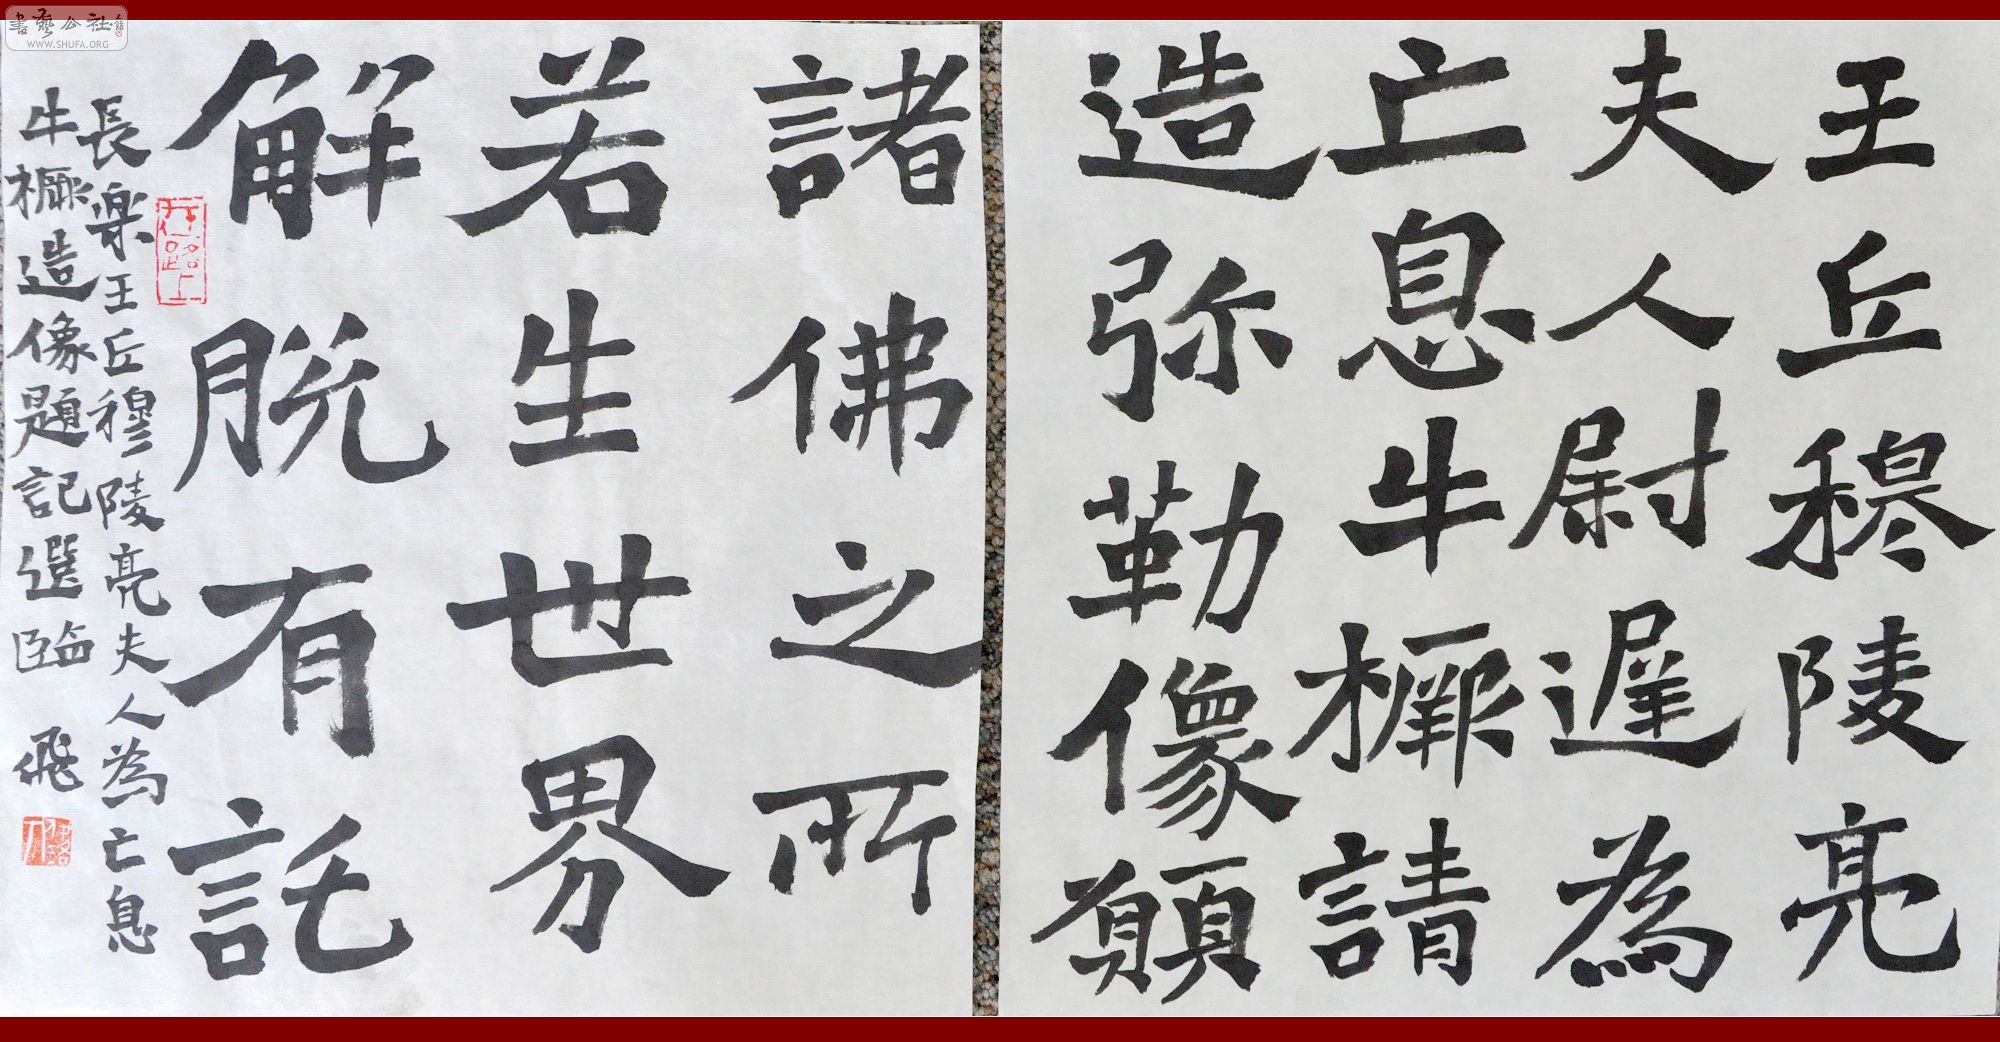 王丘穆陵亮
夫人尉遲為
亡息牛橛請
造弥勒像願
諸佛之所
若生世界
解脱有託
長樂王丘穆陵亮夫人為亡息
牛橛造像題記選臨 飛
在路上
書藝公社
WWW.SHUFA.ORG